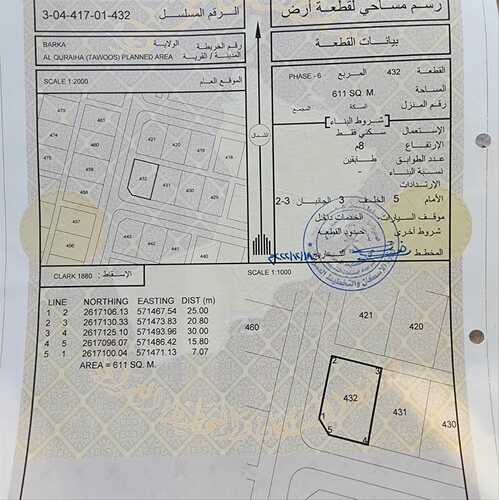 رسم مساحي لقطعة أرض
3-04-417-01-432 الرقم المسلسل
بيانات القطعة
BARKA الولاية
رقم الخريطة
AL QURAIHA (TAWOOS) PLANNED AREA المدينة / القرية
SCALE 1:2000 الموقع العام
القطعة 432 المربع PHASE -6
المساحة 611 SQ. M.
رقم المنزل السكة المجمع
شروط البناء
الإستعمال سكني فقط
الإرتفاع 8م
عدد الطوابق طابقين
نسبة البناء -
الإرتدادات
الأمام 5 الخلف 3 الجانبان 3-2
موقف السيارات- الخدمات داخل
شروط أخرى حدود القطعة
المخطط التاريخ
الشمال
479
478
477
476
457
456
460
421
420
422
432
431
430
CLARK 1880 الإسقاط:
SCALE 1:1000
LINE NORTHING EASTING DIST (m)
1 2 2617106.13 571467.54 25.00
2 3 2617130.33 571473.83 20.80
3 4 2617125.10 571493.96 30.00
4 5 2617096.07 571486.42 15.80
5 1 2617100.04 571471.13 7.07
AREA = 611 SQ. M.
460
421
420
2
3
432
431
430
1
5
4